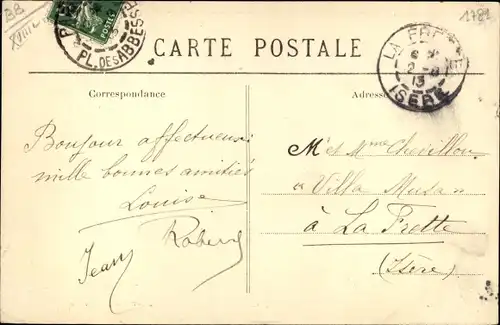 BB
XVIII
1781
POSTES
PL. DES ABBESSES
CARTE POSTALE
LA FRETTE
2 - 8
13
ISÈRE
Correspondance
Adresse
Bonjour affectueux
mille bonnes amitiés
Louise
Jean Robert
Mr et Mme Chevillon
" Villa Musa "
à La Frette
(Isère)